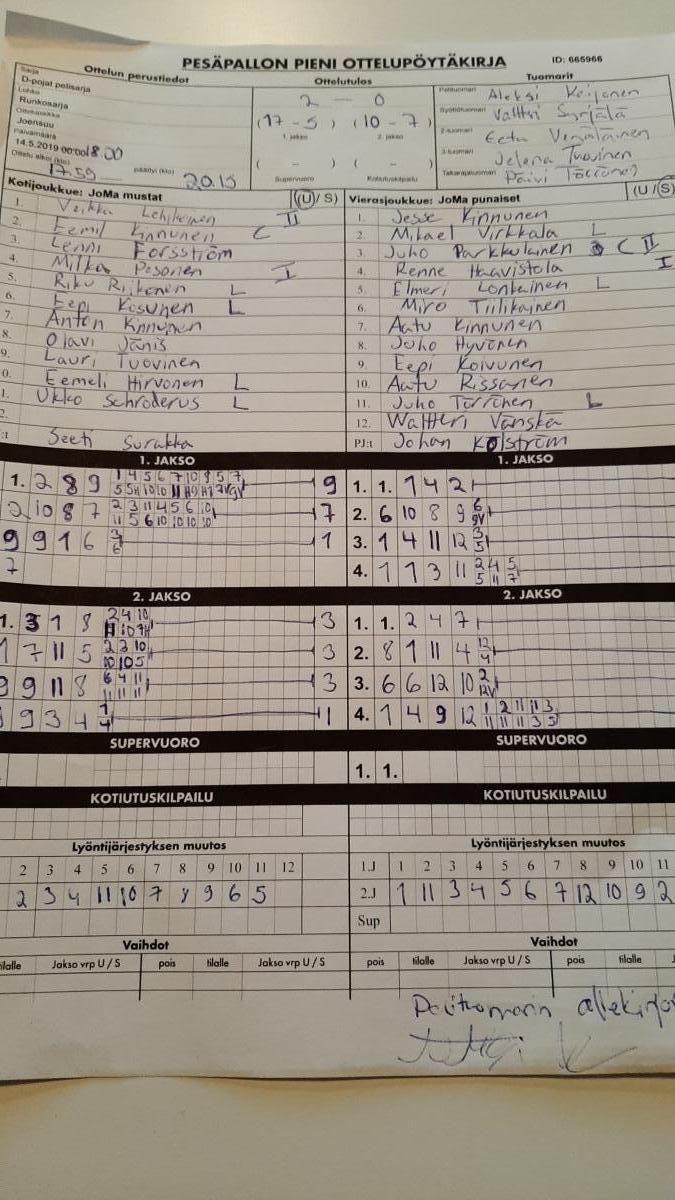 PESÄPALLON PIENI OTTELUPÖYTÄKIRJA ID: 665966
Ottelun perustiedot
Ottelutulos
Tuomarit
Sarja
D-pojat pelisarja
Lohko
Runkosarja
Ottelupaikka
Joensuu
Päivämäärä
14.5.2019 00:00 18.00
Ottelu alkoi (klo) 17.59 päättyi (klo) 20.15
2 - 0
(17 - 5) (10 - 7)
1. jakso 2. jakso
( - ) ( - )
Supervuoro Kotiutuskilpailu
Pelituomari Aleksi Keijonen
Syöttötuomari Valtteri Syrjälä
2-tuomari Eetu
3-tuomari Jelena Tuovinen
Takarajatuomari Päivi
Kotijoukkue: JoMa mustat (U / S)
1. Veikka
2. Eemil Kinnunen C II
3. Lenni Forsström
4. Milka Pesonen I
5. Riku Riikonen L
6. Eepi Kosunen L
7. Anton Kinnunen
8. Olavi Jänis
9. Lauri Tuovinen
0. Eemeli Hirvonen L
1. Ukko Schroderus L
2.
:t Seeti Surakka
Vierasjoukkue: JoMa punaiset (U / S)
1. Jesse Kinnunen
2. Mikael Virkkala L
3. Juho Parkkulainen C II
4. Renne Haavistola I
5. Elmeri Lonkainen L
6. Miro Tiilikainen
7. Aatu Kinnunen
8. Juho Hyvönen
9. Eepi Koivunen
10. Aatu Rissanen
11. Juho Törrönen L
12. Waltteri Vänskä
PJ:t Johan Kolström
1. JAKSO
1. 2 8 9 1 4 5 6 7 10 8 5 7 9
2 10 8 7 2 3 11 4 5 6 10 7
11 5 6 10 10 10 10
9 9 1 6 3 1
6
7
1. JAKSO
1. 1. 1 4 2
2. 6 10 8 9 6
9V
3. 1 4 11 12 3
5
4. 1 1 3 11 2 4 5
5 11 7
2. JAKSO
1. 3 1 8 2 4 10 3
1 7 11 5 2 2 10 3
10 10 5
9 9 11 8 6 4 11 3
11 11 11
9 3 4 1 1
4
2. JAKSO
1. 1. 2 4 7
2. 8 1 11 4 12
4
3. 6 6 12 10 2
12V
4. 1 4 9 12 1 2 11 11 3
11 11 11 3 5
SUPERVUORO
SUPERVUORO
1. 1.
KOTIUTUSKILPAILU
KOTIUTUSKILPAILU
Lyöntijärjestyksen muutos
2 3 4 5 6 7 8 9 10 11 12
2 3 4 11 10 7 8 9 6 5
Lyöntijärjestyksen muutos
1.J 1 2 3 4 5 6 7 8 9 10 11
2.J 1 11 3 4 5 6 7 12 10 9 2
Sup
Vaihdot
tilalle Jakso vrp U / S pois tilalle Jakso vrp U / S
Vaihdot
pois tilalle Jakso vrp U / S pois tilalle
Pelituomarin